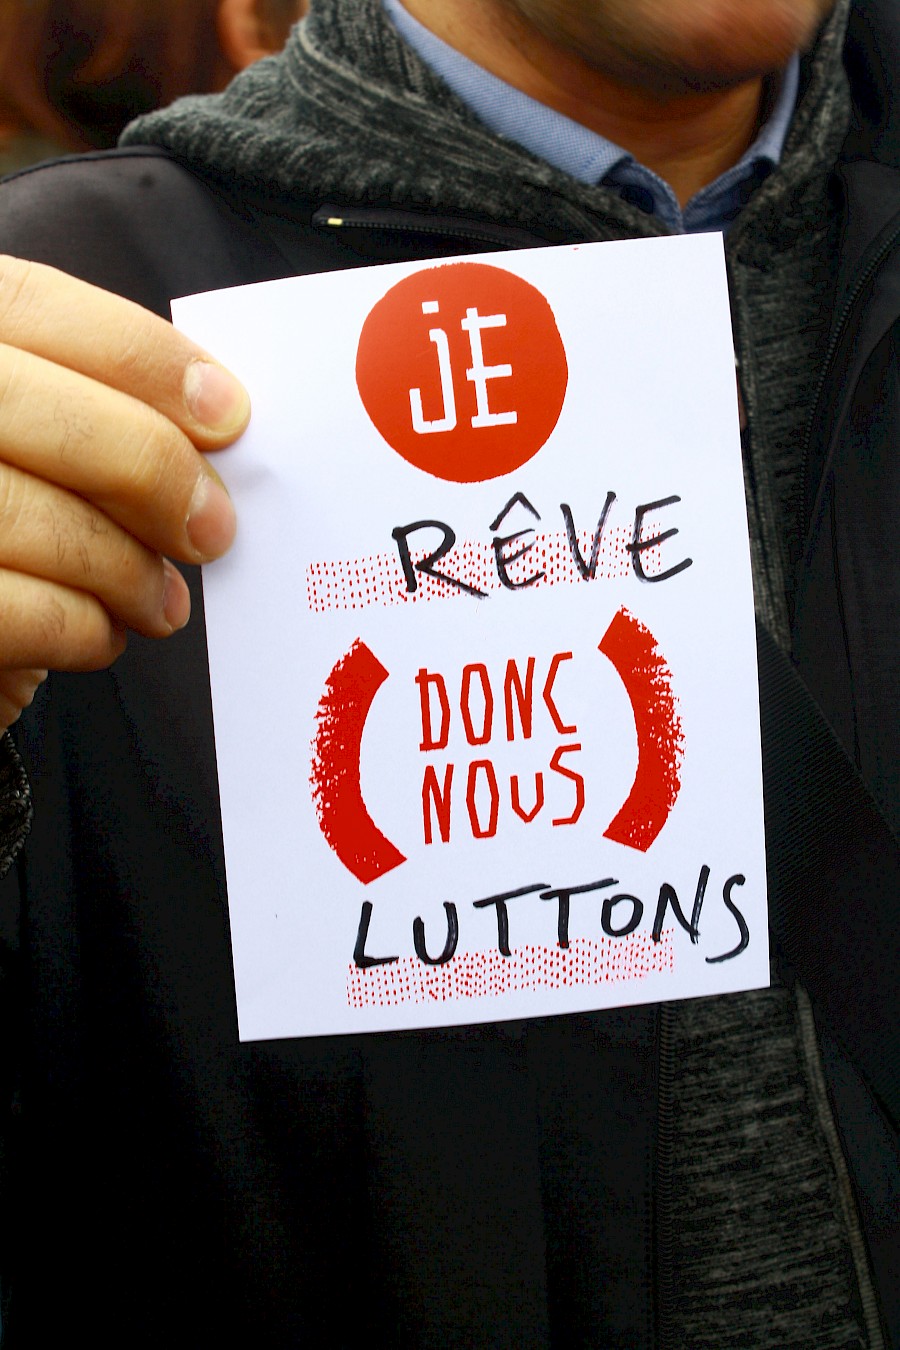 jE
RÊVE
(DONC
NOuS)
LUTTONS